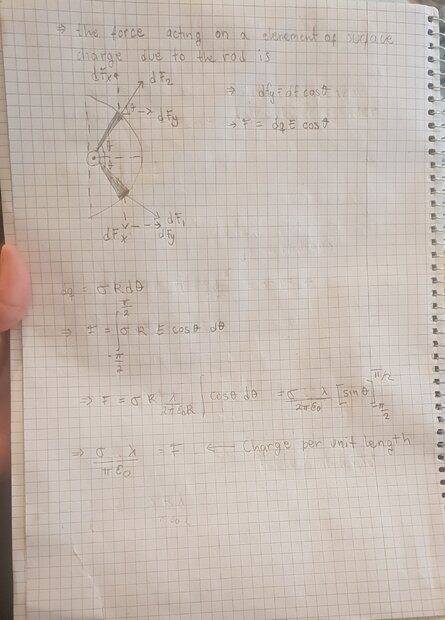 ⇒ the force acting on a element of surface
charge due to the rod is
dFx dF2
⇒ dfy = df cosθ
θ dFy
⇒ F = dq E cosθ
θ
θ
dF1
dFx dFy
dq = σ R dθ
⇒ F = ∫_{-π/2}^{π/2} σ R E cosθ dθ
⇒ F = σ R λ/2πε0R ∫ cosθ dθ = σ λ/2πε0 [sinθ]_{-π/2}^{π/2}
⇒ σ λ/πε0 = F ← Charge per unit length